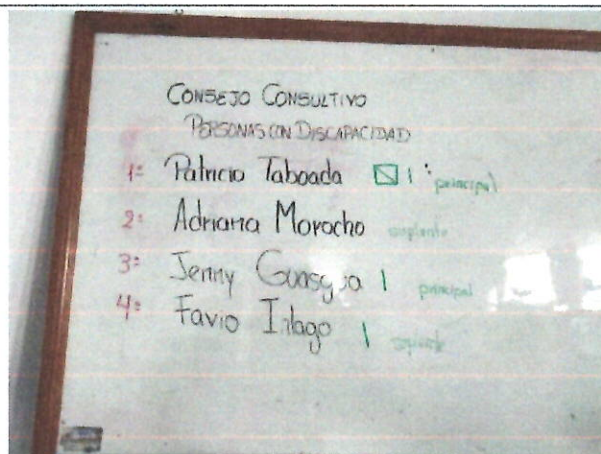 CONSEJO CONSULTIVO
PERSONAS CON DISCAPACIDAD
1: Patricio Taboada 1 principal
2: Adriana Morocho suplente
3: Jenny 1 principal
4: Favio 1 suplente